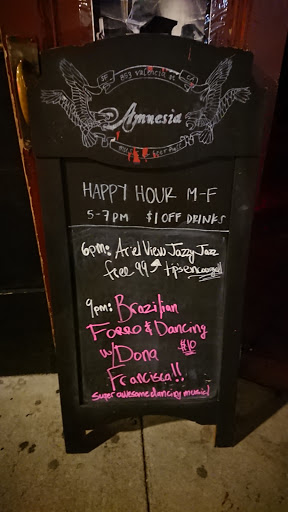 SF 853 Valencia St CA
Amnesia
HAPPY HOUR M-F
5-7PM $1 OFF DRINKS
6pm: Ariel View Jazzy Jazz
free 99 tips encouraged
9pm: Brazilian
Forro & Dancing
w/ Dona $10
Francisca!!
super awesome dancing music!